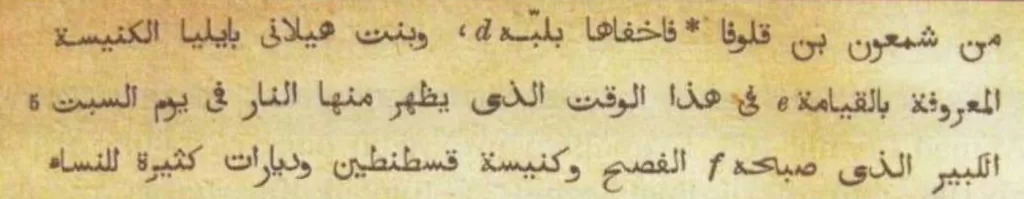 من شمعون بن قلوفا * فاخفاها بلبّه d، وبنت هيلانى بايليا الكنيسة
المعروفة بالقيامة e فى هذا الوقت الذى يظهر منها النار فى يوم السبت 5
الكبير الذى صبيحه f الفصح وكنيسة قسطنطين وديارات كثيرة للنساء